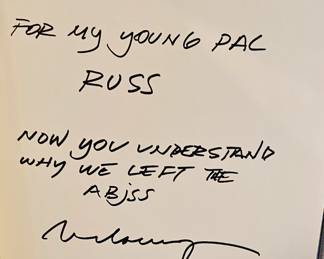 FOR MY YOUNG PAL
RUSS
NOW YOU UNDERSTAND
WHY WE LEFT THE
ABjSS